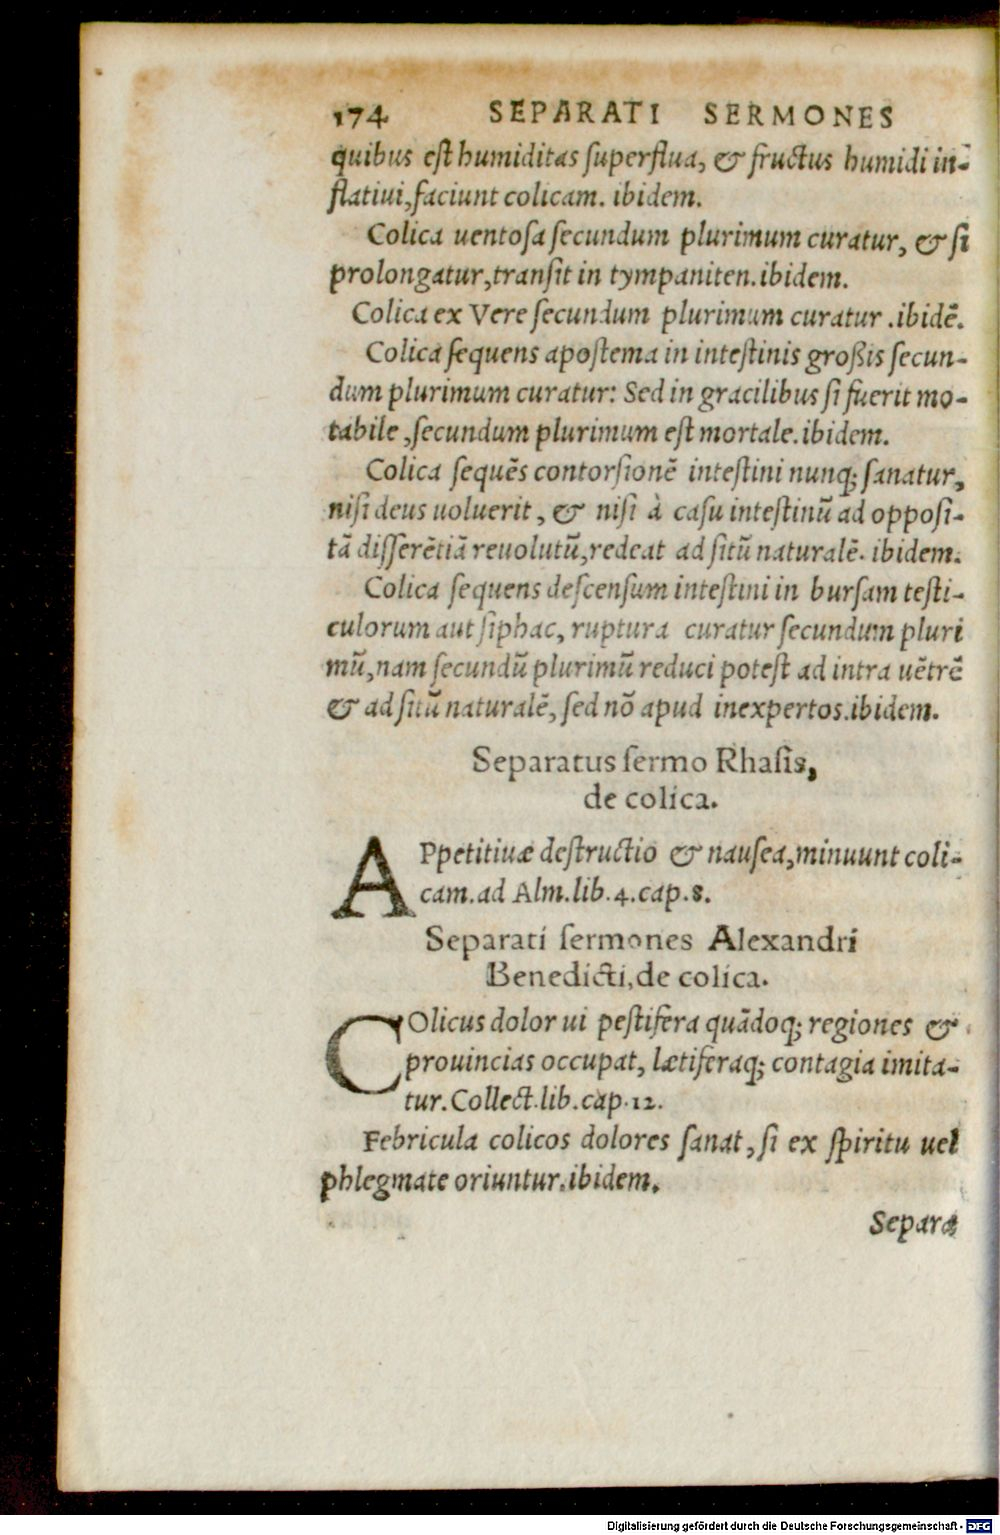 174 SEPARATI SERMONES
quibus est humiditas superflua, & fructus humidi in-
flatiui, faciunt colicam. ibidem.
Colica uentosa secundum plurimum curatur, & si
prolongatur, transit in tympaniten. ibidem.
Colica ex Vere secundum plurimum curatur .ibidẽ.
Colica sequens apostema in intestinis großis secun-
dum plurimum curatur: Sed in gracilibus si fuerit mo-
tabile, secundum plurimum est mortale. ibidem.
Colica sequẽs contorsionẽ intestini nunq; sanatur,
nisi deus uoluerit, & nisi à casu intestinũ ad opposi-
tã differẽtiã reuolutũ, redeat ad sitũ naturalẽ. ibidem.
Colica sequens descensum intestini in bursam testi-
culorum aut siphac, ruptura curatur secundum pluri
mũ, nam secundũ plurimũ reduci potest ad intra uẽtrẽ
& ad sitũ naturalẽ, sed nõ apud inexpertos. ibidem.
Separatus sermo Rhasis,
de colica.
APpetitiuæ destructio & nausea, minuunt coli-
cam. ad Alm. lib. 4. cap. 8.
Separati sermones Alexandri
Benedicti, de colica.
COlicus dolor ui pestifera quãdoq; regiones &
prouincias occupat, lætiferaq; contagia imita-
tur. Collect. lib. cap. 12.
Febricula colicos dolores sanat, si ex spiritu uel
phlegmate oriuntur. ibidem.
Separa
Digitalisierung gefördert durch die Deutsche Forschungsgemeinschaft - DFG